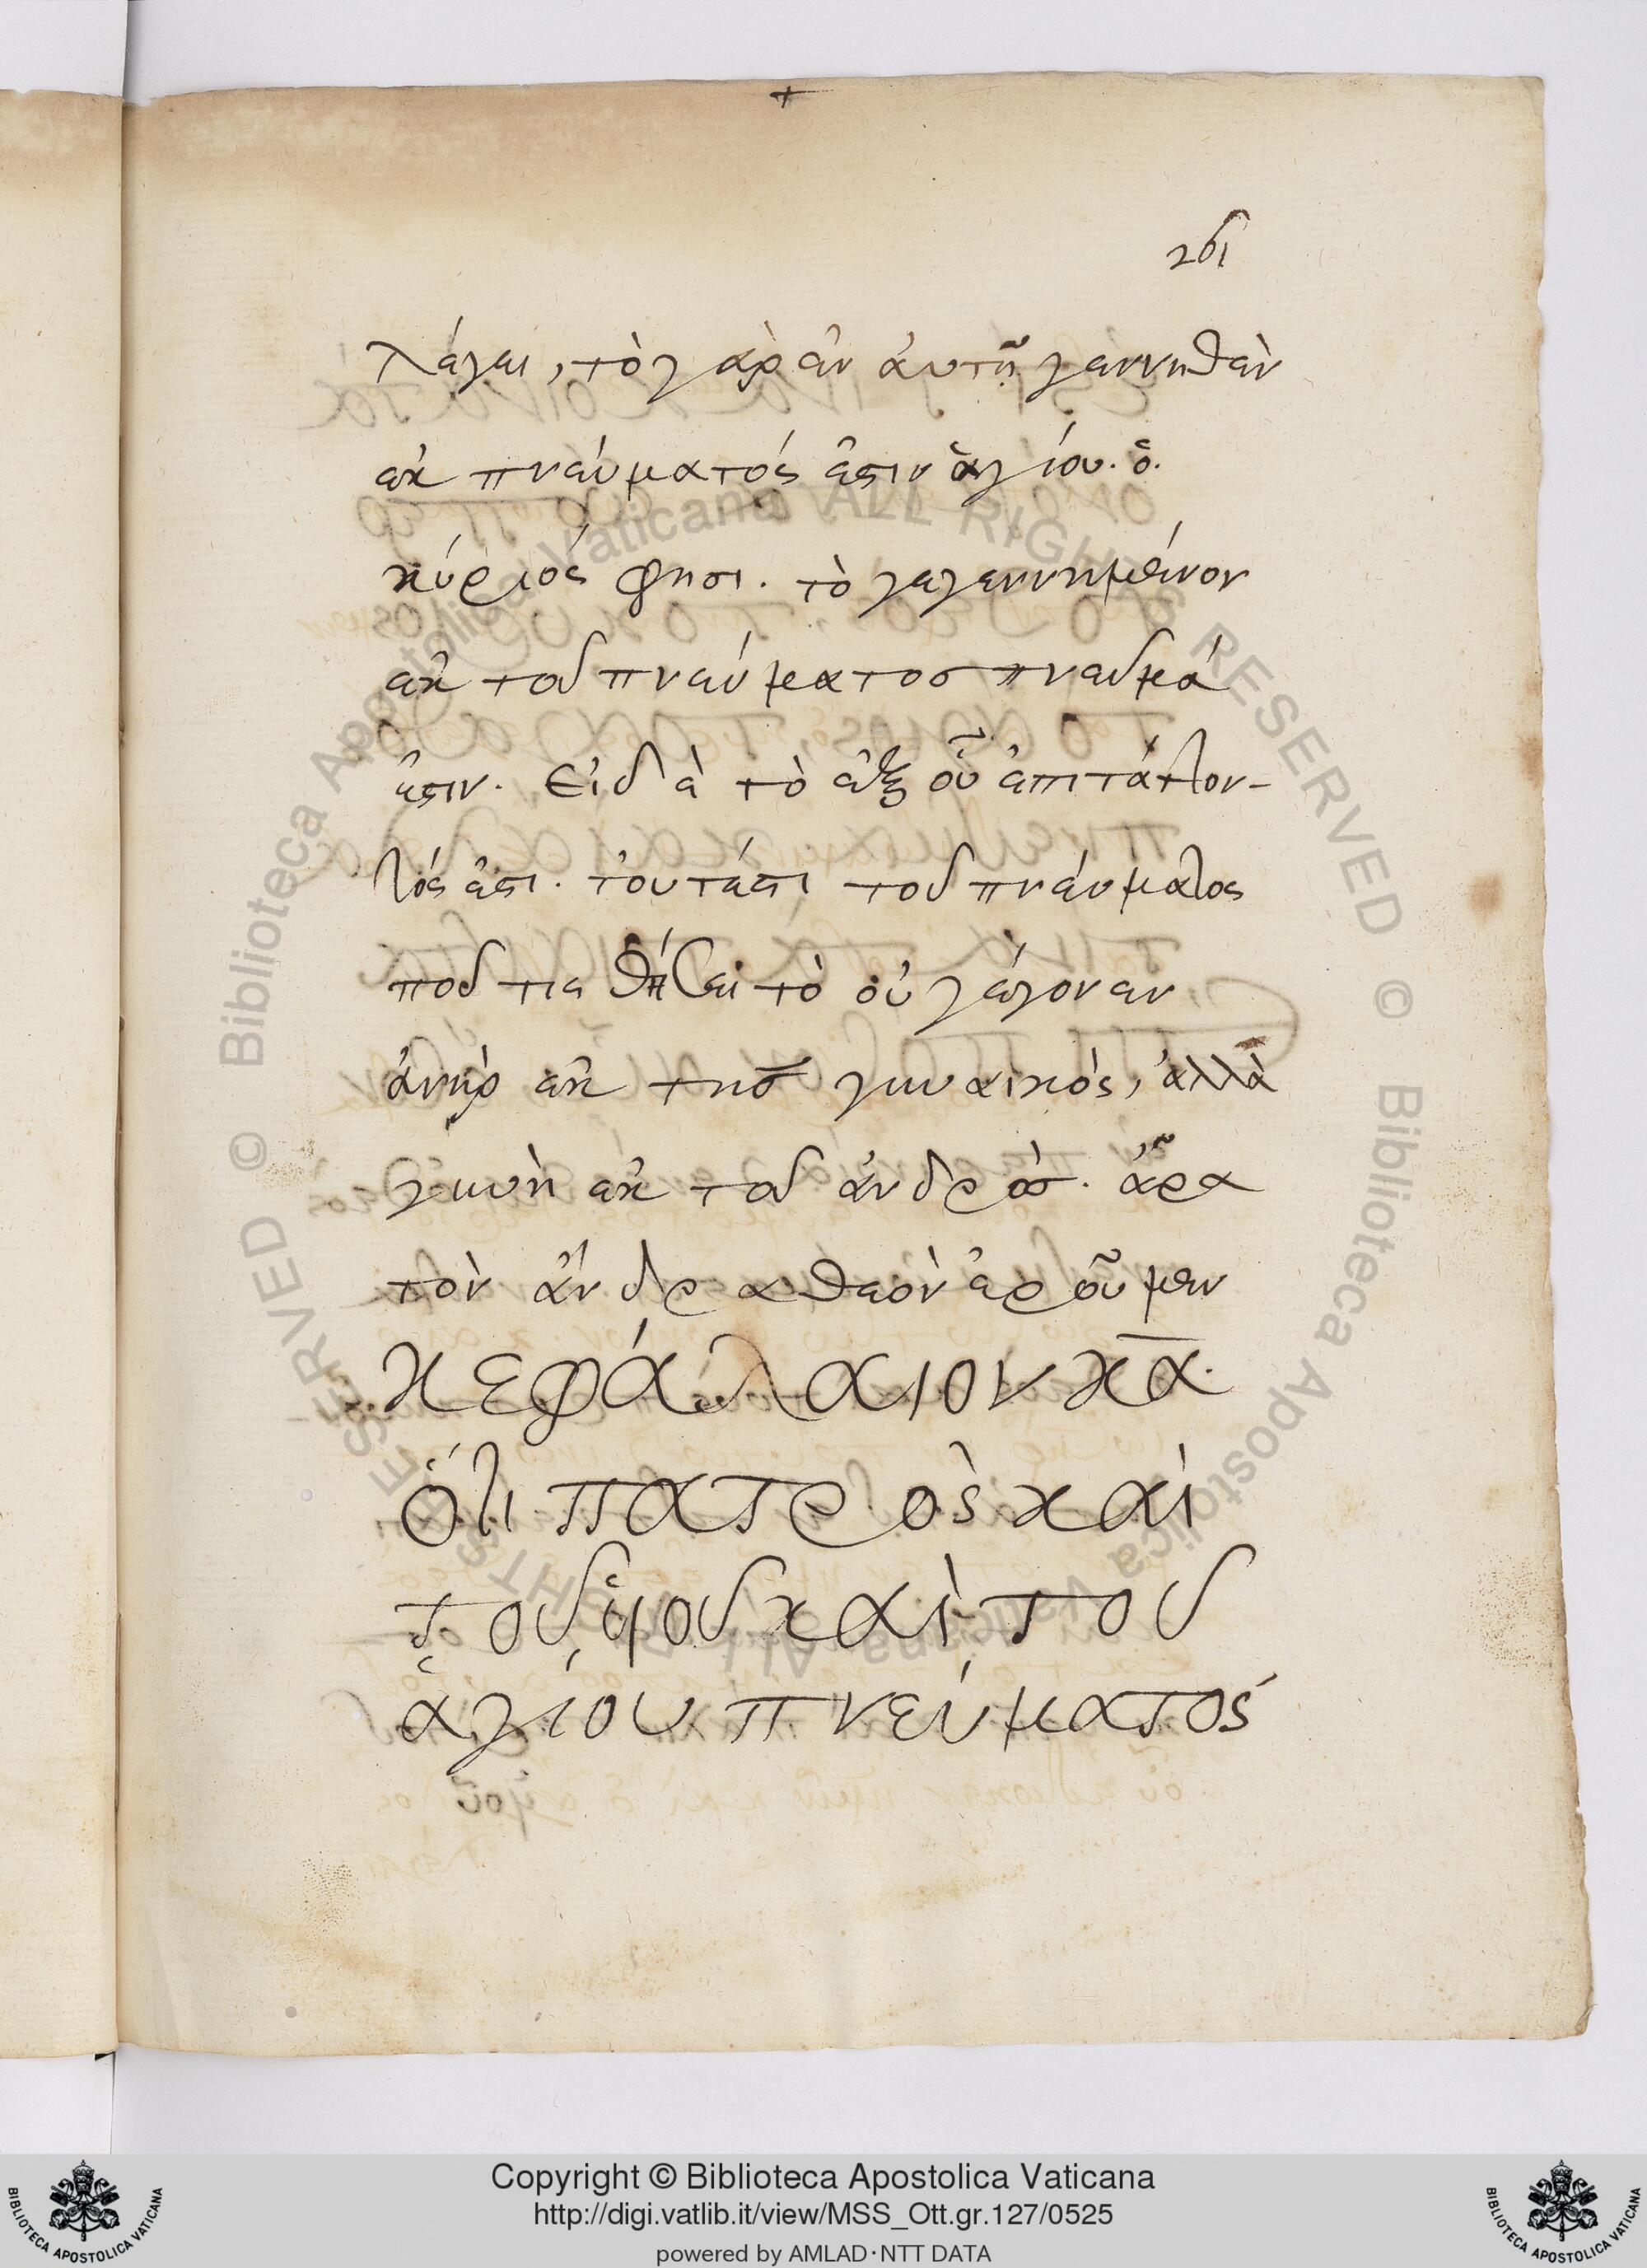 261
λέγει, τὸ γὰρ ἐν ἀυτῇ γεννηθὲν
ἐκ πνεύματός ἐστιν ἁγίου. ὁ.
κύριός φησι. τὸ γεγεννημένον
ἐκ τοῦ πνεύματοσ πνεῦμά
ἐστιν. Εἰ δὲ τὸ ἐξ οὗ ἐπιτάττον-
τός ἐστι. τουτέστι τοῦ πνεύματος
ποῦ τιθήσει τὸ οὐ γέγονεν
ἀνὴρ ἐκ τησ γυναικός, ἀλλὰ
γυνὴ ἐκ τοῦ ἀνδρόσ. ἄρα
τὸν ἄνδρα θεὸν ἐροῦμεν
κεφάλαιον κα.
Ὁτι πατρὸς καὶ
τοῦ ὑιοῦ καὶ τοῦ
ἁγίου πνεύματος
Copyright © Biblioteca Apostolica Vaticana
http://digi.vatlib.it/view/MSS_Ott.gr.127/0525
powered by AMLAD·NTT DATA
BIBLIOTECA APOSTOLICA VATICANA
BIBLIOTECA APOSTOLICA VATICANA
© Biblioteca Apostolica Vaticana ALL RIGHTS RESERVED
© Biblioteca Apostolica Vaticana ALL RIGHTS RESERVED